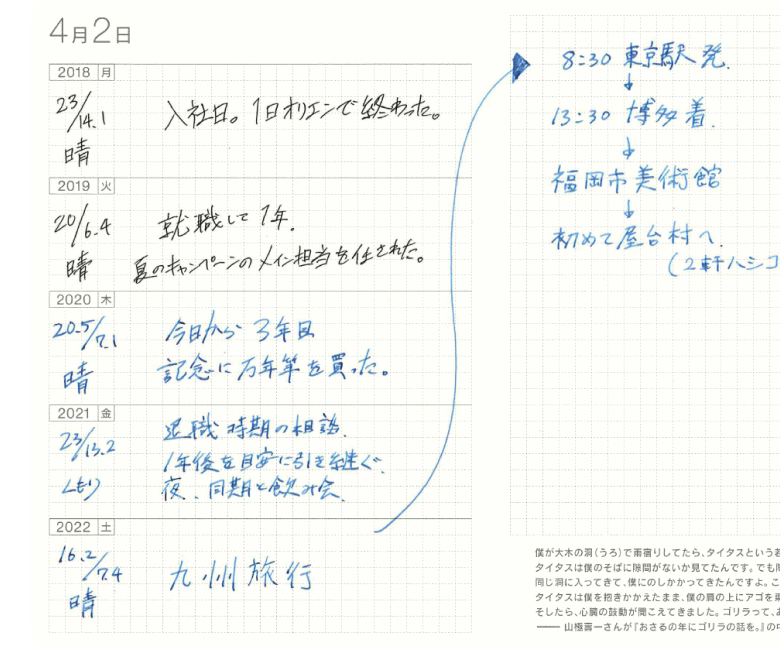 4月2日
2018 月
23/14.1
晴
入社日。1日オリエンで終わった。
2019 火
20/6.4
晴
就職して1年.
夏のキャンペーンのメイン担当を任された。
2020 木
20.5/7.1
晴
今日から3年目
記念に万年筆を買った。
2021 金
23/13.2
くもり
退職時期の相談.
1年後を目安に引き継ぐ.
夜、同期と飲み会.
2022 土
16.2/7.4
晴
九州旅行
8:30 東京駅発.
↓
13:30 博多着.
↓
福岡市美術館
↓
初めて屋台村へ.
(2軒ハシゴ
僕が大木の洞(うろ)で雨宿りしてたら、タイタスという若
タイタスは僕のそばに隙間がないか見てたんです。でも
同じ洞に入ってきて、僕にのしかかってきたんですよ。こ
タイタスは僕を抱きかかえたまま、僕の肩の上にアゴを乗
そしたら、心臓の鼓動が聞こえてきました。ゴリラって、
―― 山極壽一さんが『おさるの年にゴリラの話を。』の